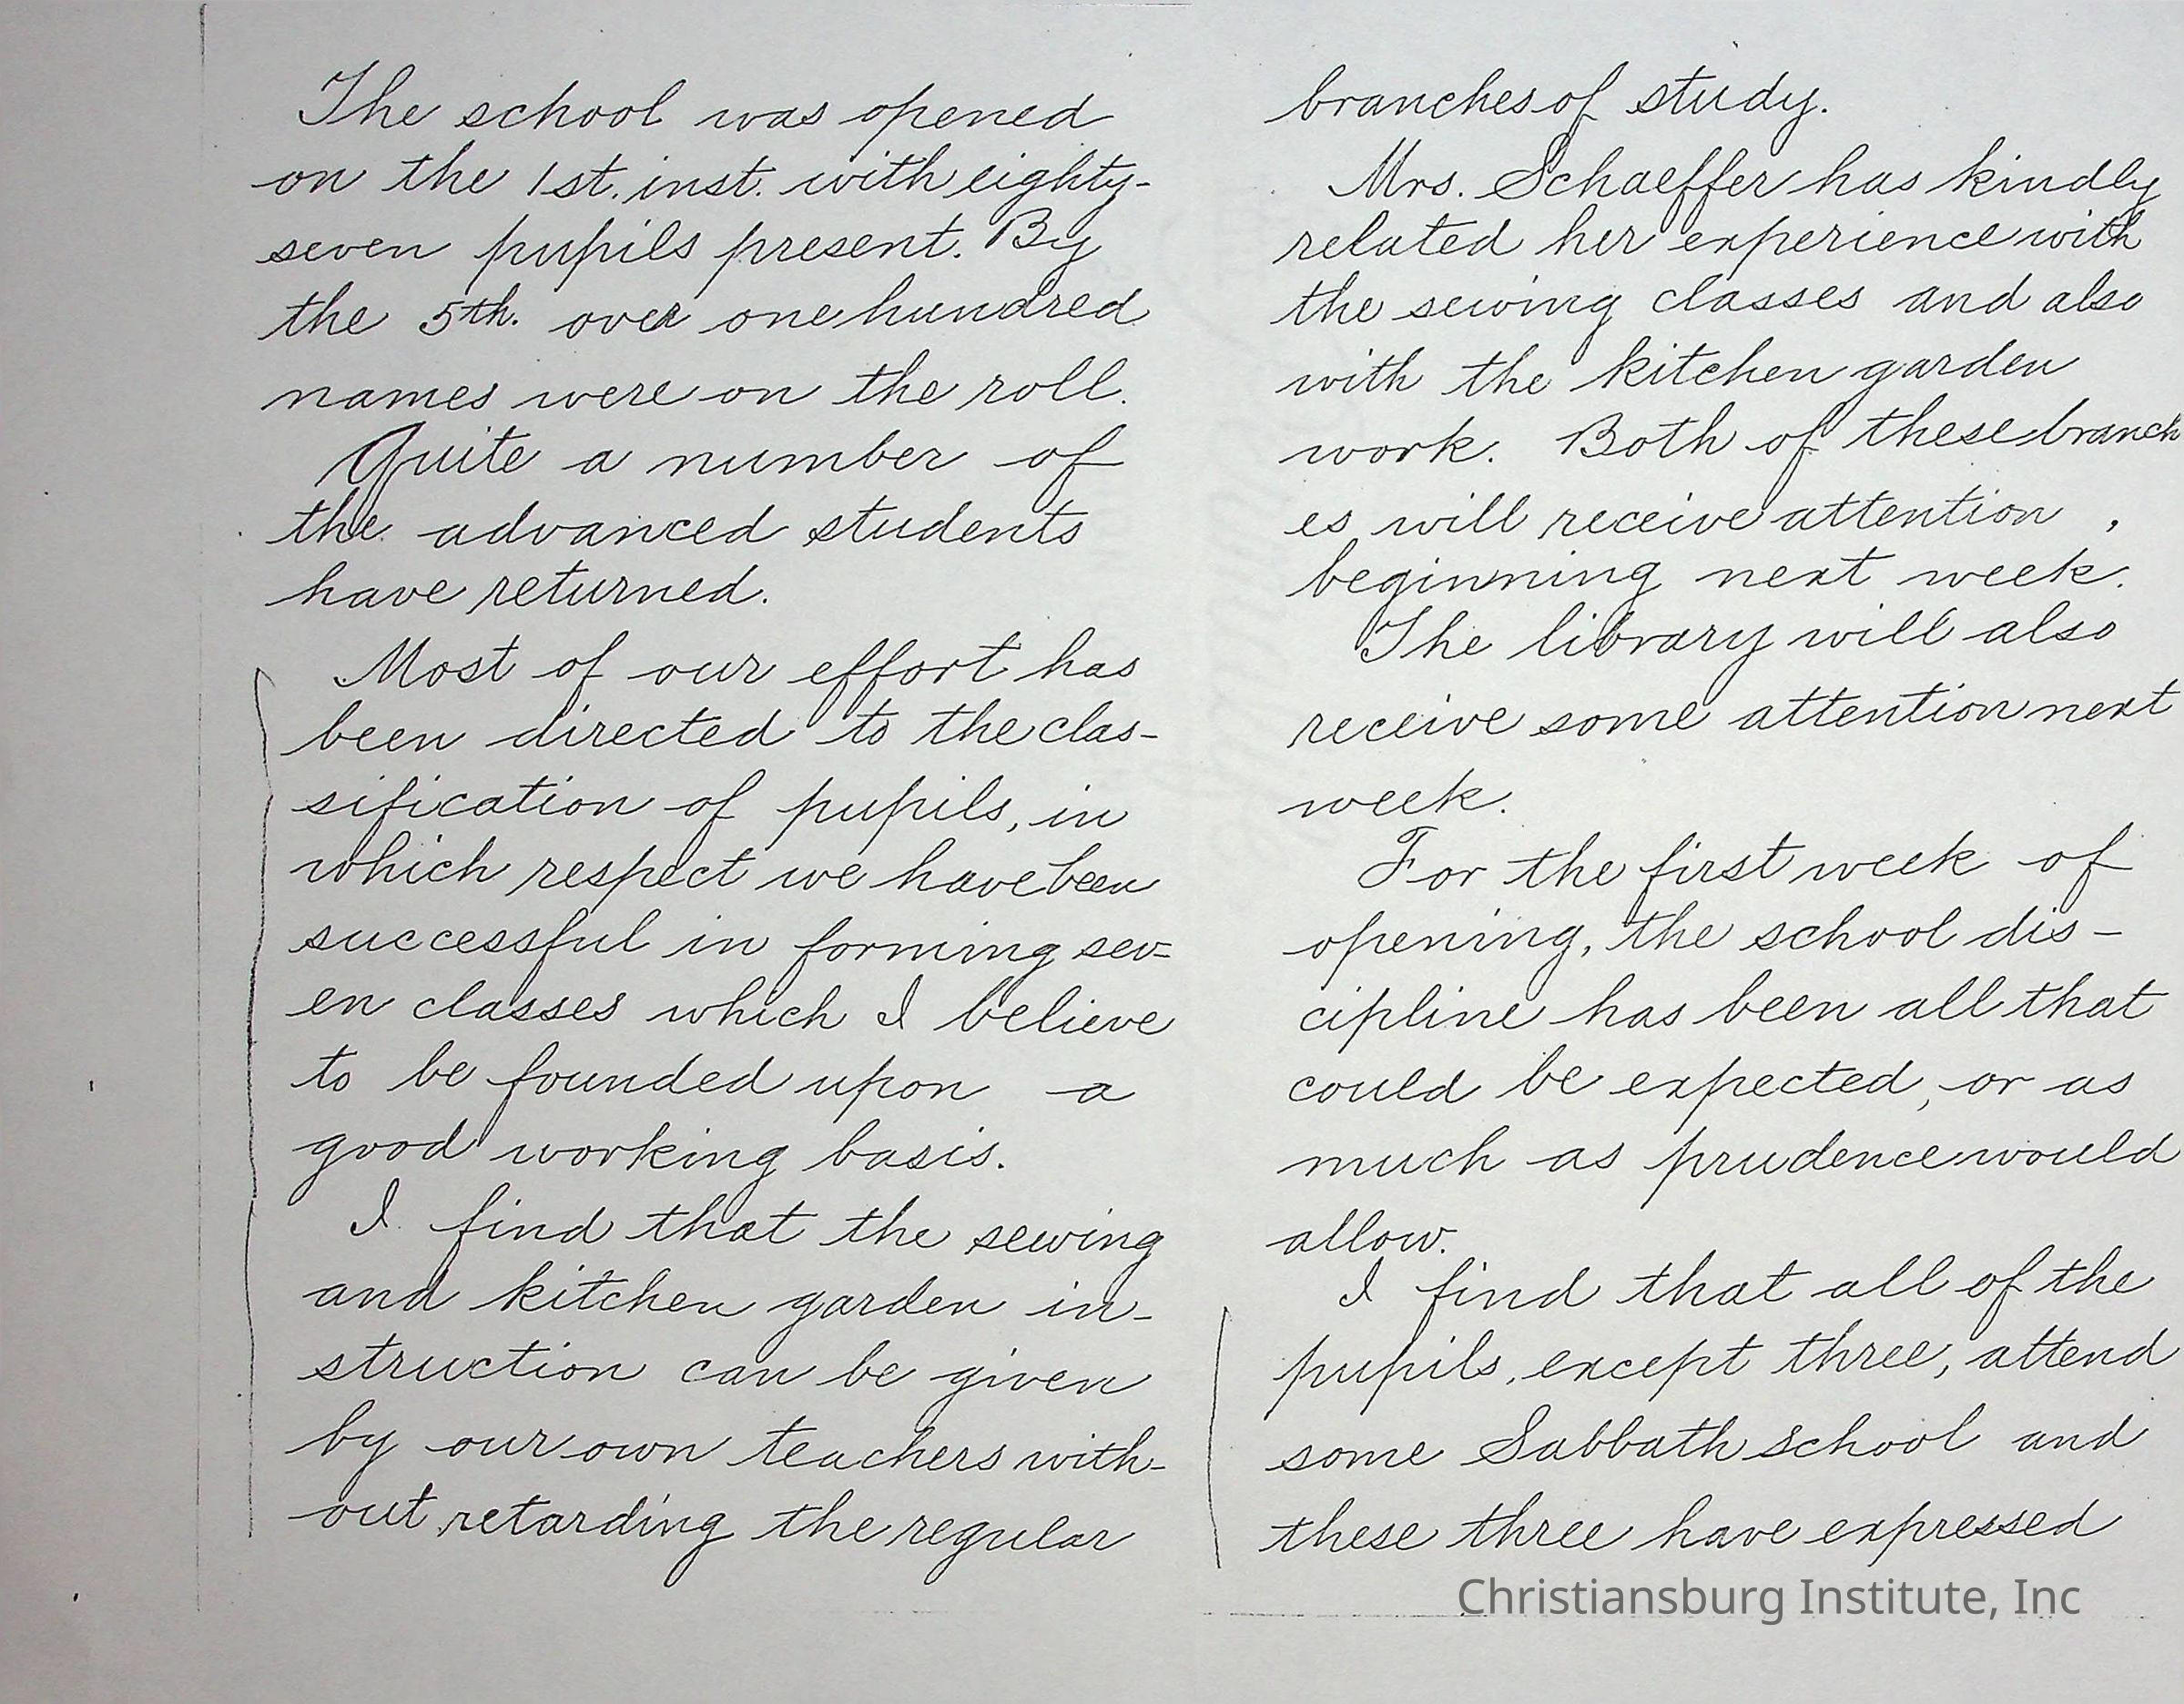 The school was opened
on the 1st. inst. with eighty-
seven pupils present. By
the 5th. over one hundred
names were on the roll.
Quite a number of
the advanced students
have returned.
Most of our effort has
been directed to the clas-
sification of pupils, in
which respect we have been
successful in forming sev-
en classes which I believe
to be founded upon a
good working basis.
I find that the sewing
and kitchen garden in-
struction can be given
by our own teachers with-
out retarding the regular
branches of study.
Mrs. Schaeffer has kindly
related her experience with
the sewing classes and also
with the kitchen garden
work. Both of these branch
es will receive attention,
beginning next week.
The library will also
receive some attention next
week.
For the first week of
opening, the school dis-
cipline has been all that
could be expected, or as
much as prudence would
allow.
I find that all of the
pupils, except three, attend
some Sabbath school and
these three have expressed
Christiansburg Institute, Inc